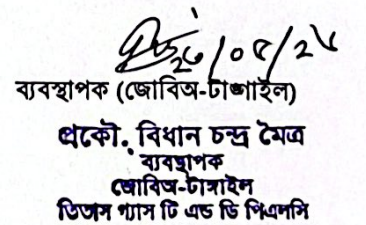 ২৬/০৫/২৫
ব্যবস্থাপক (জোবিঅ-টাঙ্গাইল)
প্রকৌ. বিধান চন্দ্র মৈত্র
ব্যবস্থাপক
জোবিঅ-টাঙ্গাইল
তিতাস গ্যাস টি এন্ড ডি পিএলসি